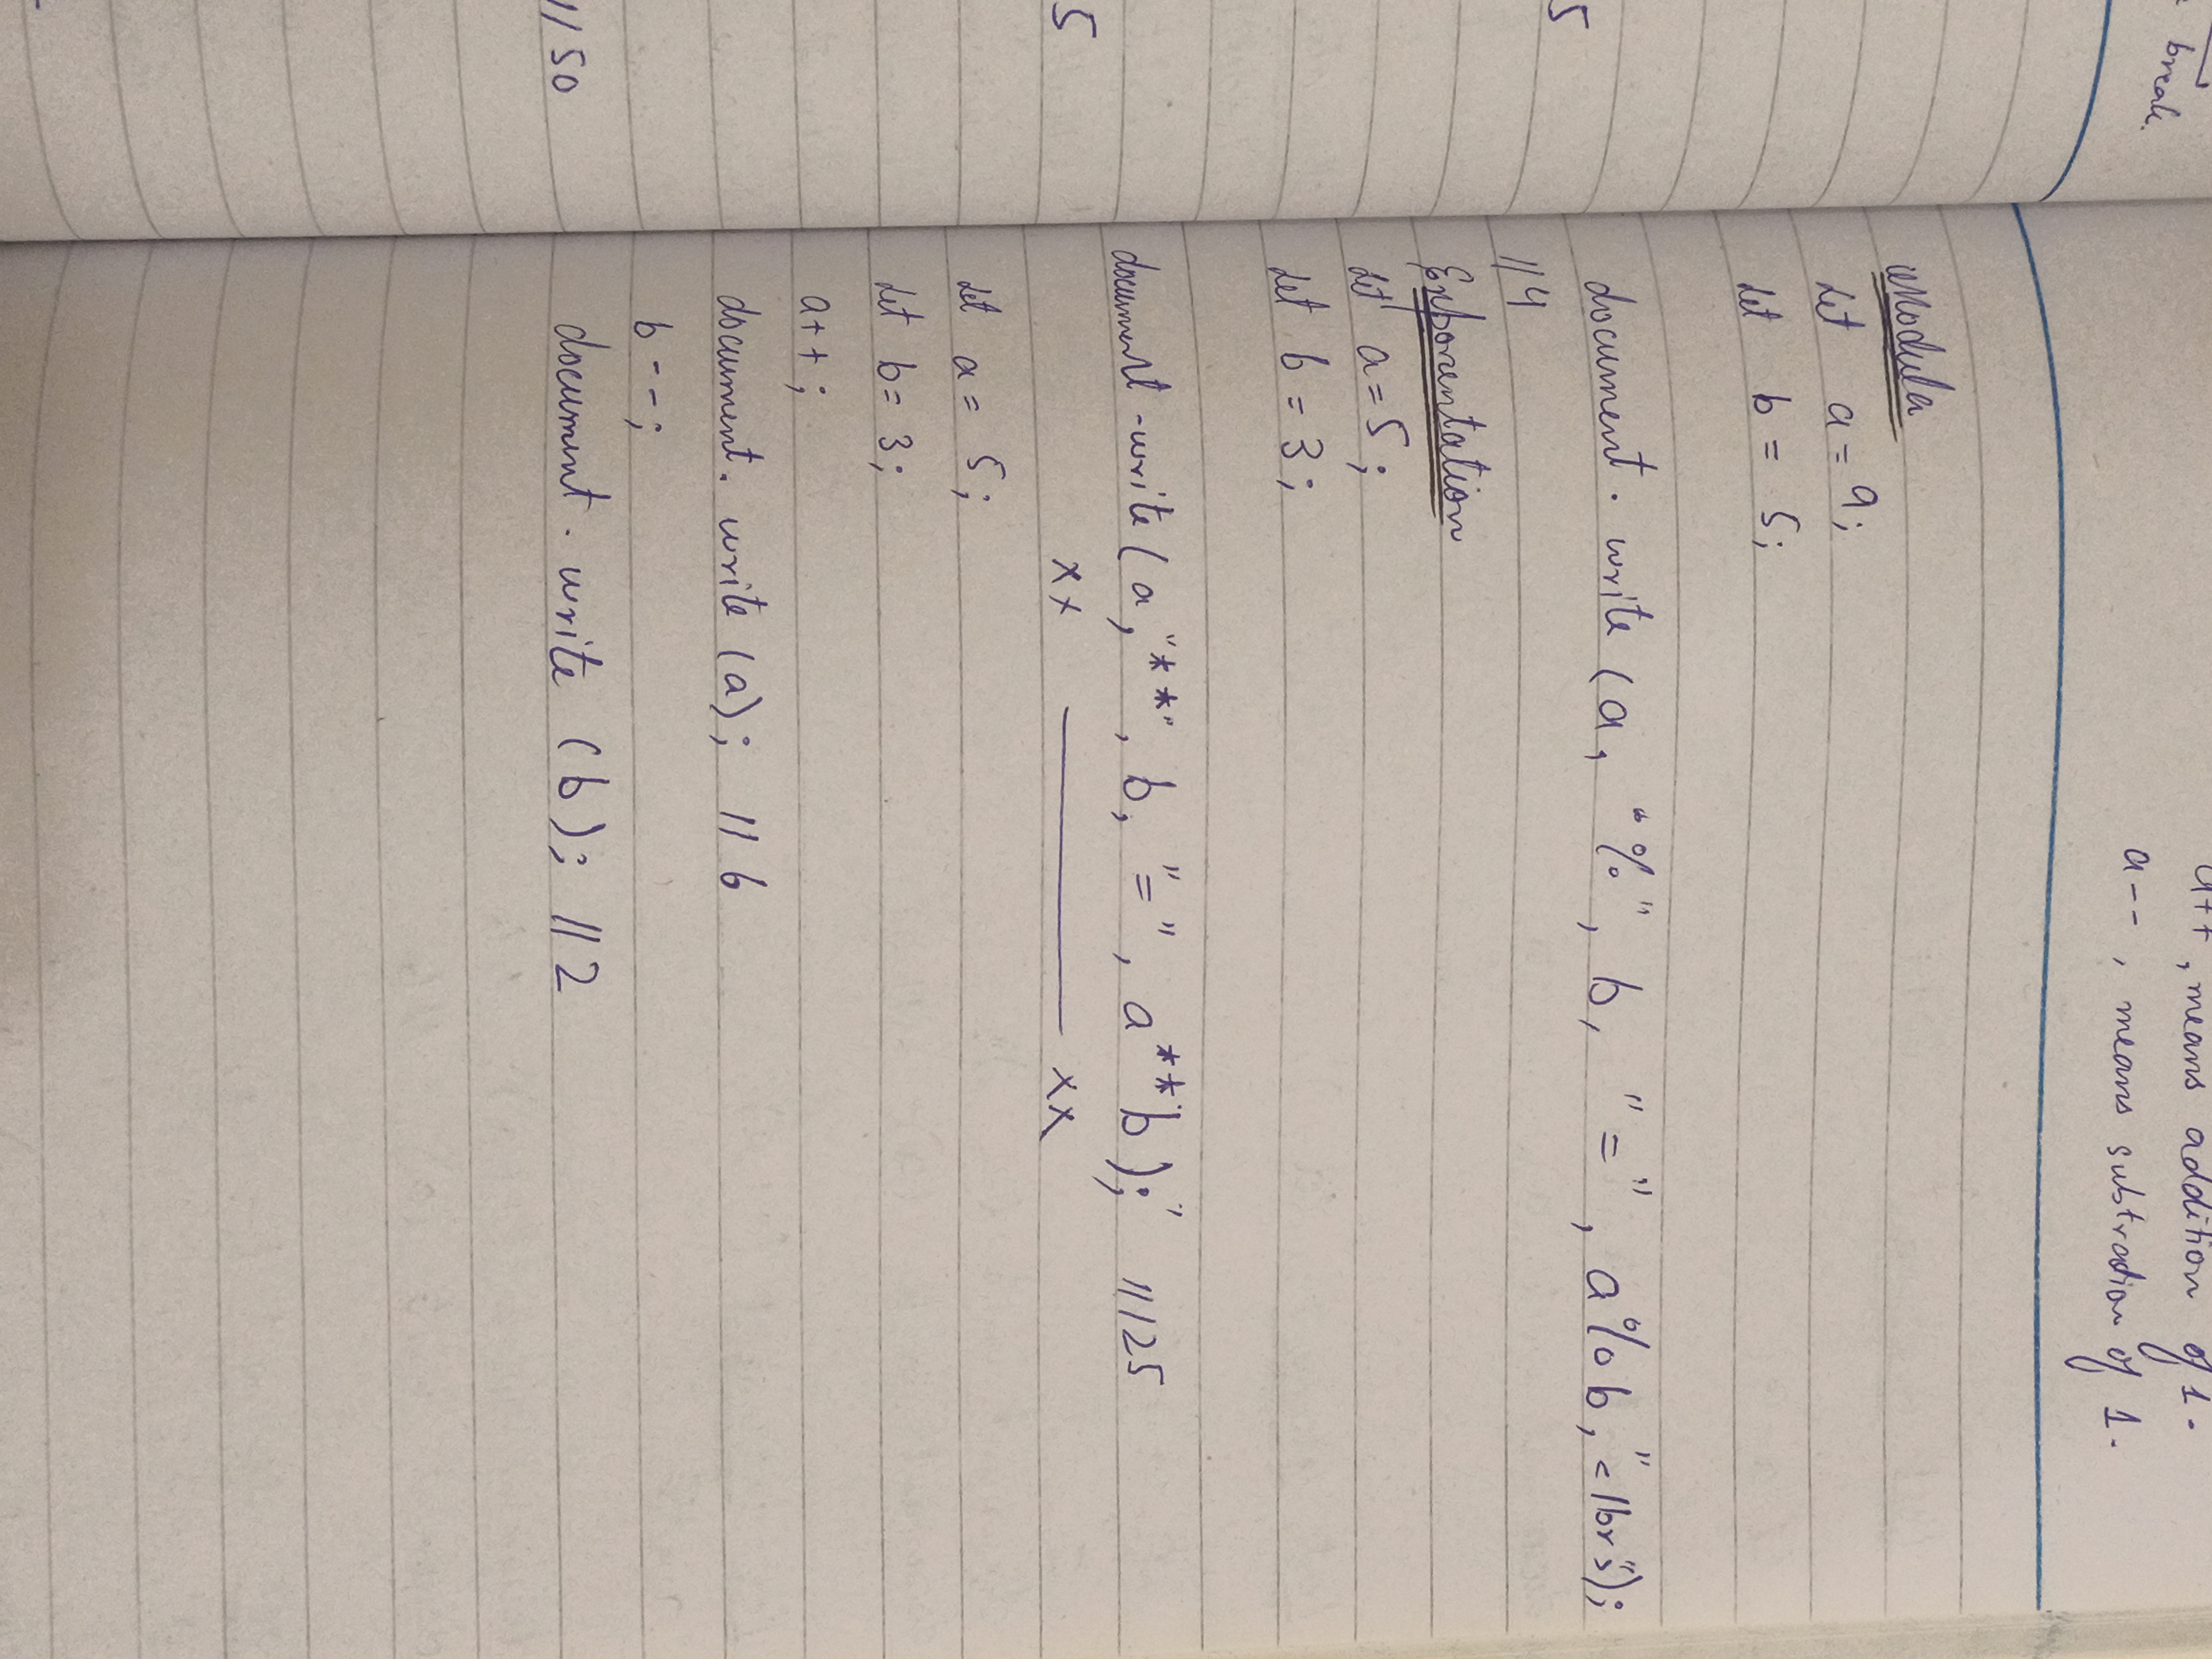 break.
5
5
//50
a++, means addition of 1.
a--, means subtration of 1.
Modula
Let a = 9;
Let b = 5;
document. write (a, "%", b, "=", a%b, "</br>");
//4
Exponentation
Let a = 5;
Let b = 3;
document.write(a,"**", b, "=", a**b); //125
xx ——— xx
Let a = 5;
Let b = 3;
a++;
document. write (a); //6
b--;
document. write (b); //2